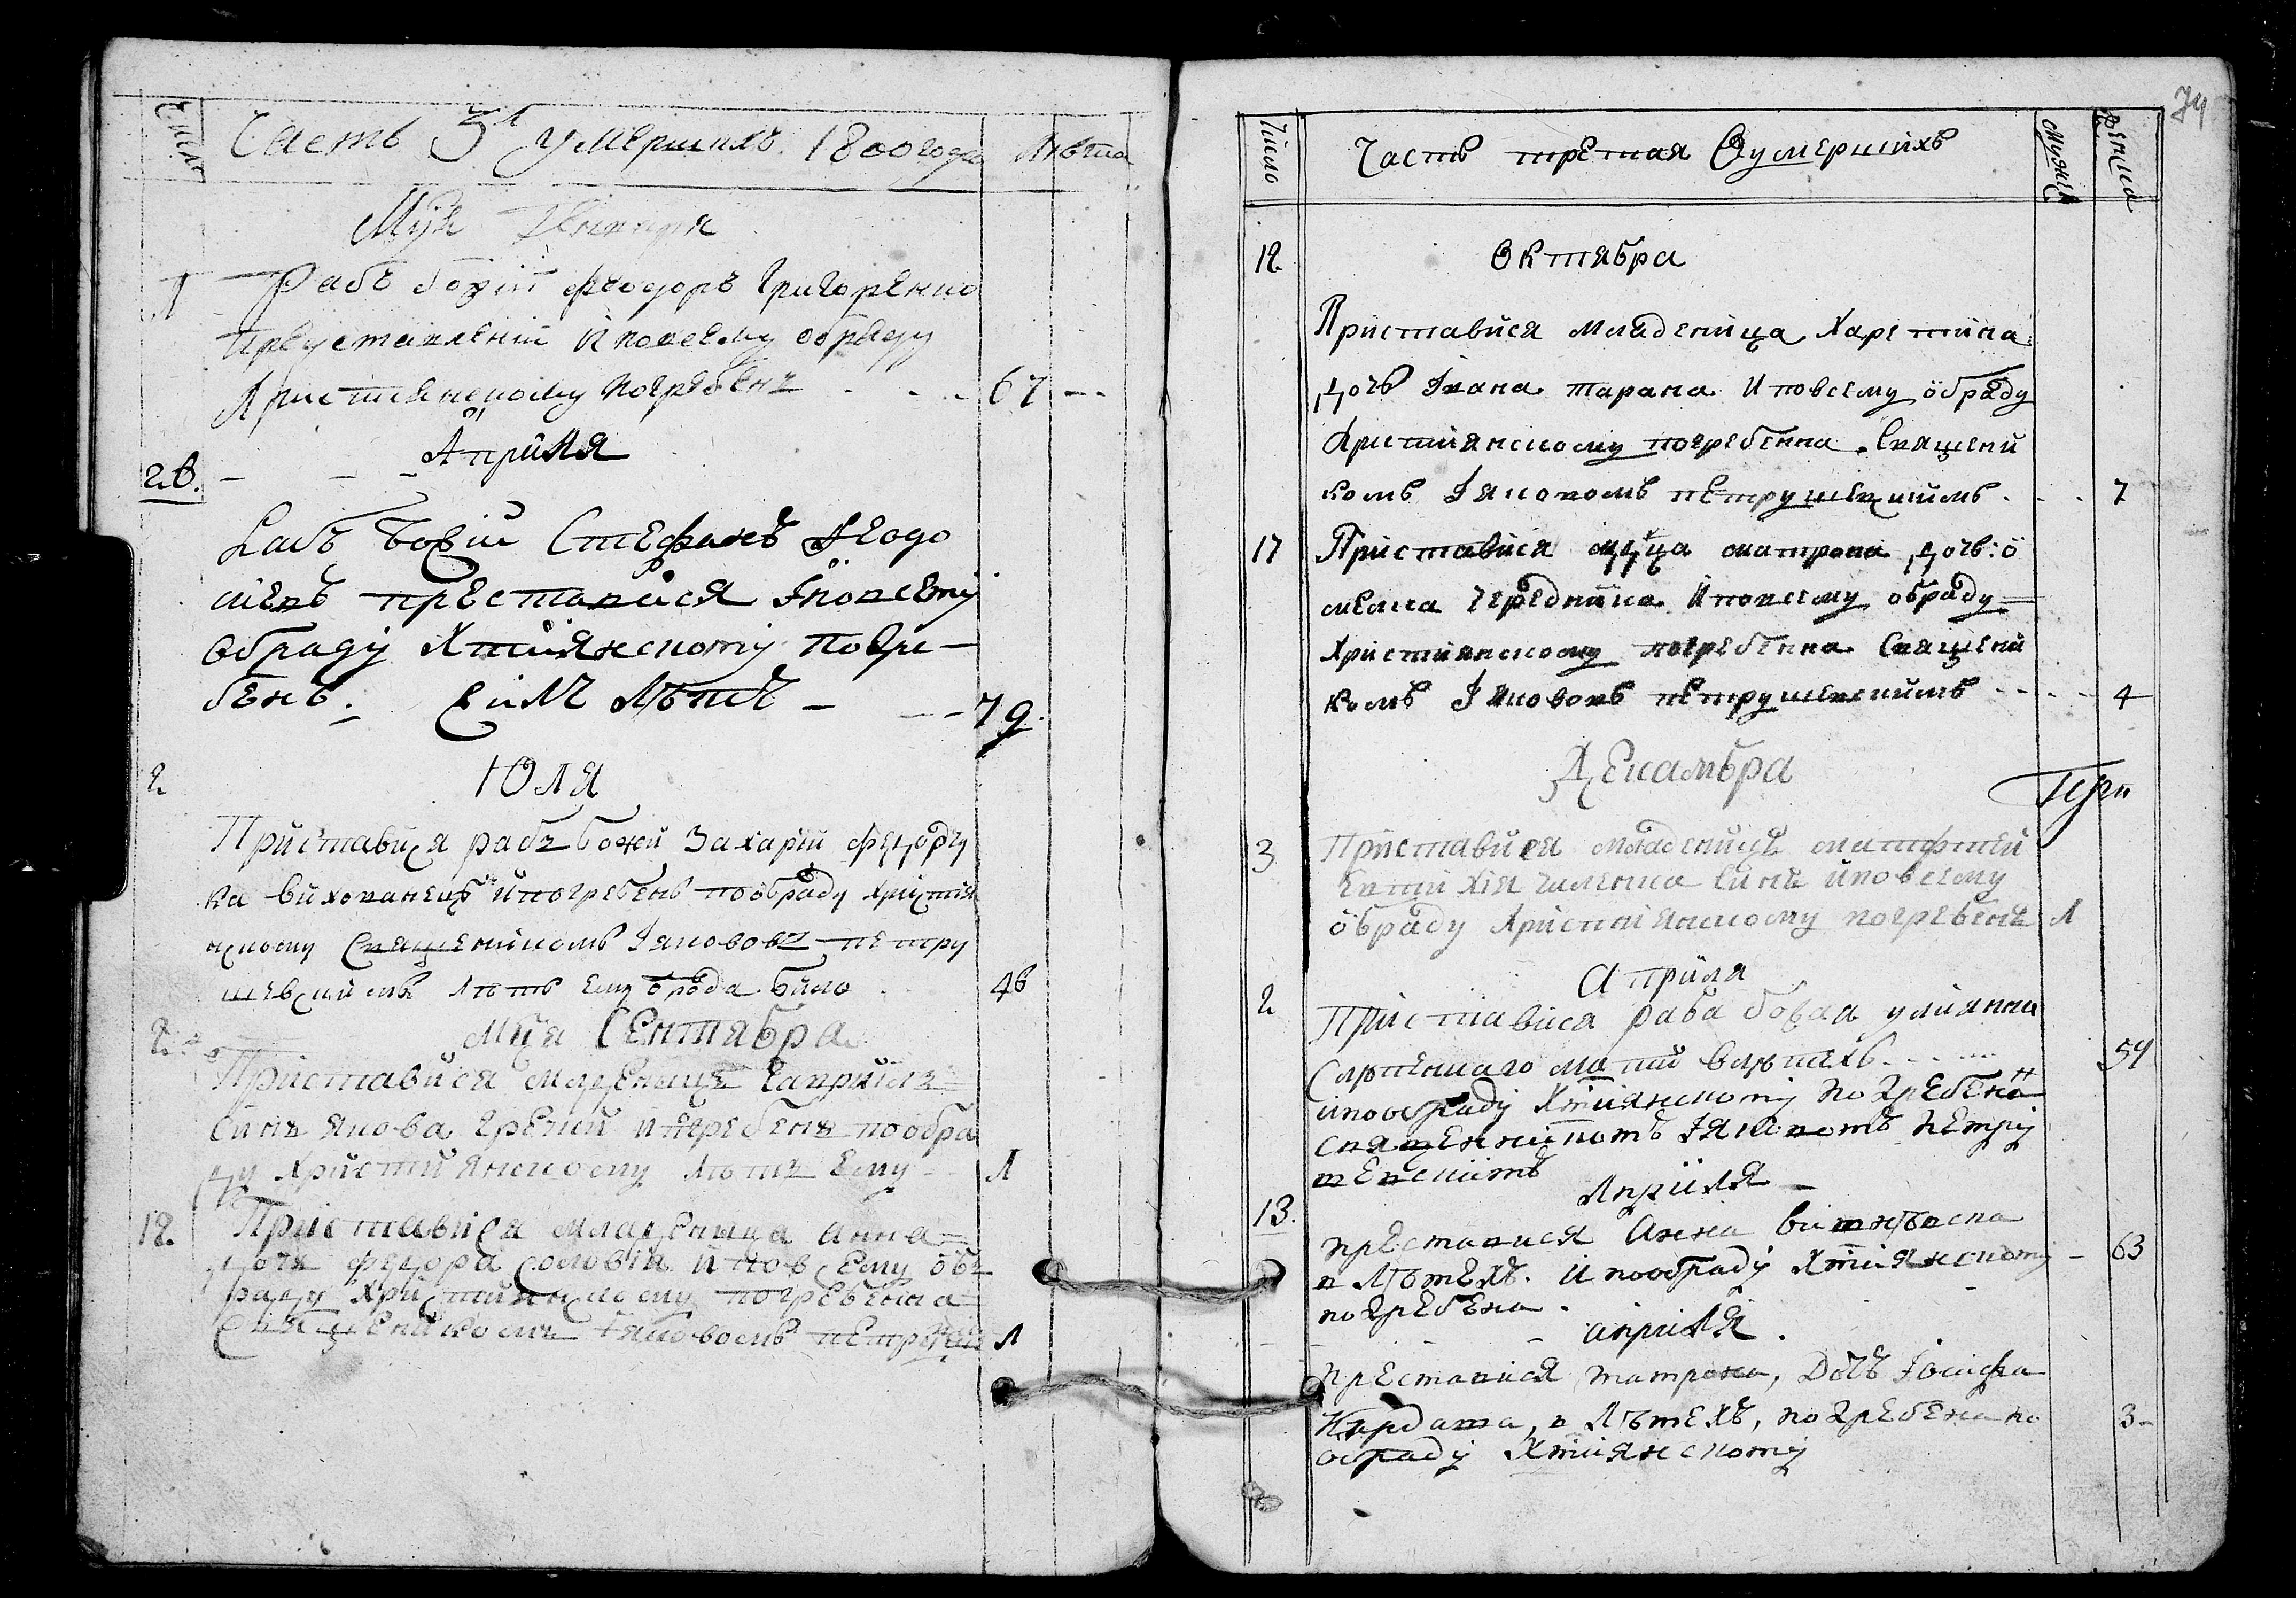 Число
Часть 3я умершихъ 1800 года Лѣта
Мца Генваря
1 Рабъ божій Феодоръ Григоренко
преуставленій и повсему обряду
Христианскому погребенъ - - - 67 - -
Априля
2.в.
Рабъ Божій Стефанъ
преставися Іповсему
обряду Хтиянскому погре-
бенъ. Ему Лѣтъ - - - 79.
2 Юля
Приставися рабъ божей Захарій Федорч
ка вихованецъ и погребенъ пообряду христия
нскому Священикомъ Іяковомъ петру
шевскимъ Лѣтъ ему ѿрода било 46
2. Мця Сентября
Приставися младенецъ Гаврйилъ
Синъ Якова Гречки и погребенъ пообра
ду Християнскому Лѣтъ Ему - - Л
12. Приставися младеница Анна
дочь Федора соловія и повсему обо
ряду Християнскому погребенна
Священикомъ Іяковомъ петруше Л
74
Число Часть третая Оумершихъ Мужеск Женска
12. Октября
Приставйся младенйца Харетина
дочь Ивана тарана и повсему обряду
Христйянскому погребенна Священй
комъ Іяковомъ петрушевскимъ . - . 7
17 Приставйся мдца матрона дочь: о
мелка Чередника и повсему обряду
Християнскому погребенна Священй
комъ Іяковомъ петрушевскимъ - - - - 4
Декамбра
3 Приставйся младенйцъ матфтей
Евтихія синъ иповсему
обряду Христйянскому погребенъ Л
Априля
2 Приставися раба божая улиянна
мати влѣтахъ - - - 54
ипообряду Хтиянскому погребена
священникомъ Іяковомъ петру
шевскимъ
Априля -
13. преставися Анна
в Лѣтехъ. и пообряду Хтиянскому - 63
погребена.
априля.
преставися матрона, Дочъ Іосифа
в Лѣтехъ, погребена по 3-
обряду Хтиянскому